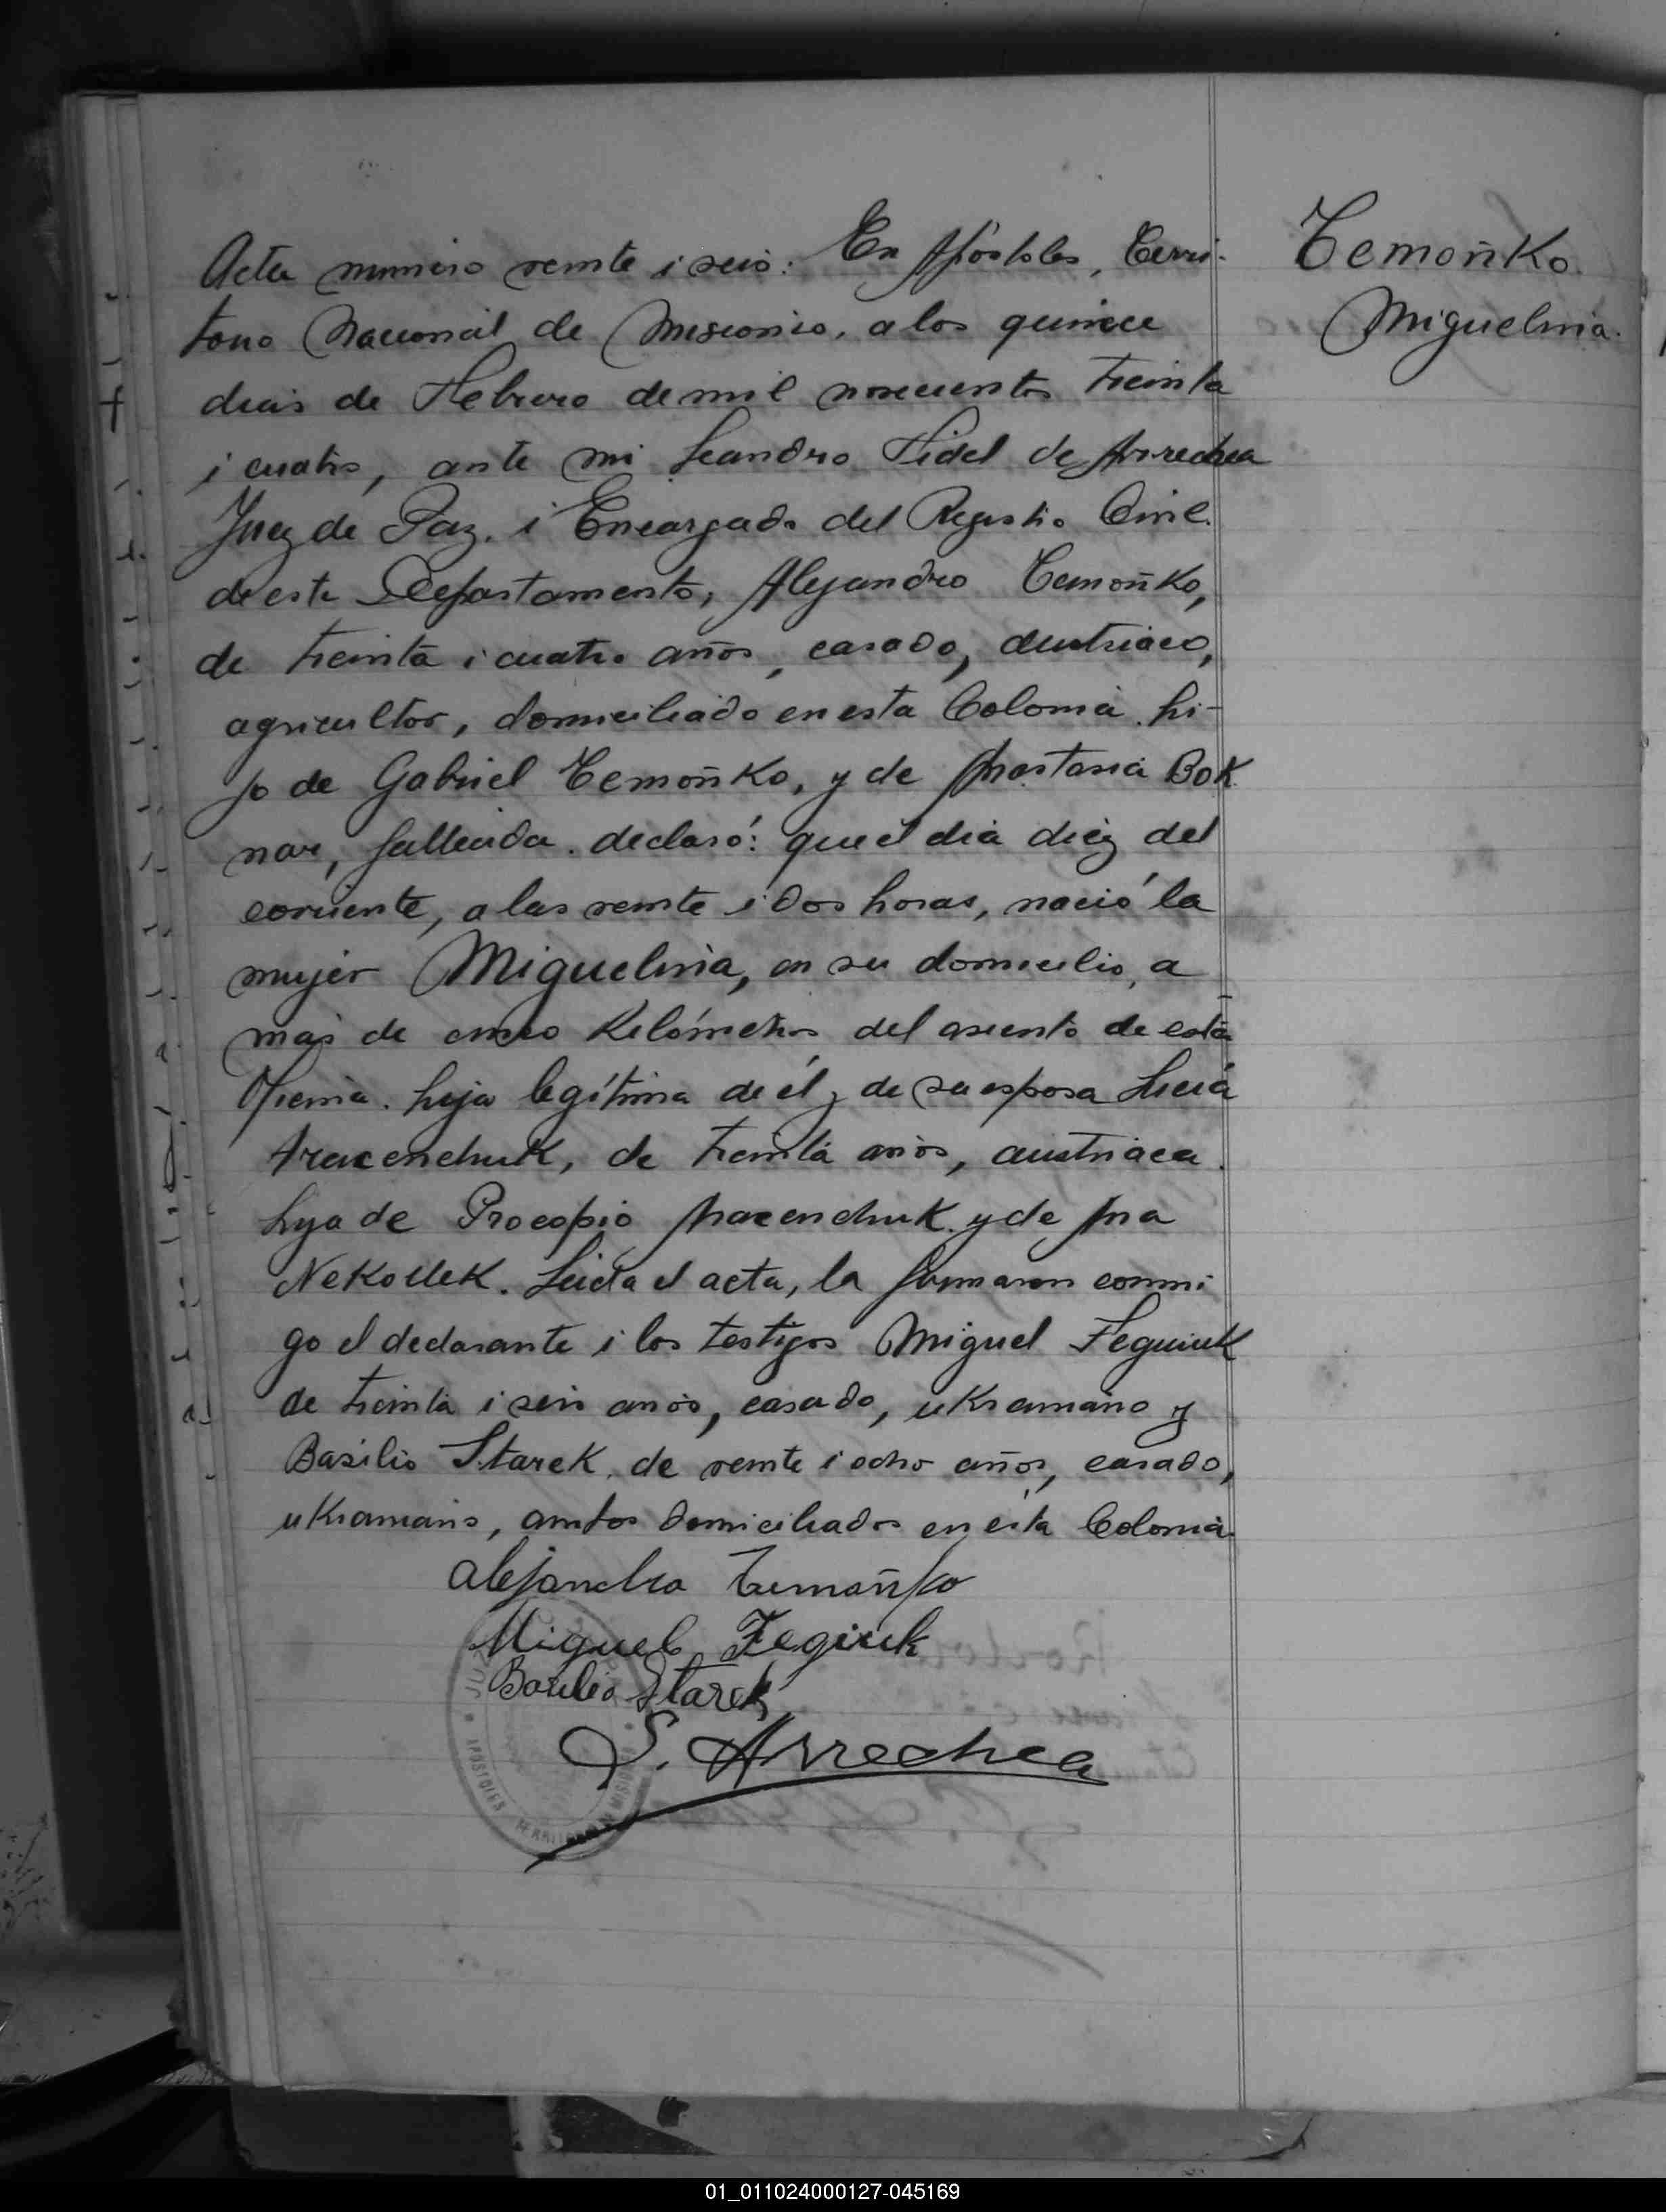 Acta numero veinte i seis: En Apóstoles, Terri-
torio Nacional de Misiones, a los quince
dias de Febrero de mil novecientos treinta
i cuatro, ante mi Leandro Fidel de Arrechea
Juez de Paz, i Encargado del Registro Civil
de este Departamento, Alejandro Temoñko,
de treinta i cuatro años, casado, austriaco,
agricultor, domiciliado en esta Colonia. hi-
jo de Gabriel Temoñko, y de Anastasia Bok
nar, fallecida. declaró: que el dia diez del
corriente, a las veinte i dos horas, nació la
mujer Miguelina, en su domicilio, a
más de cinco Kilómetros del asiento de esta
Oficina. hija legítima de él y de su esposa Lucía
de treinta años, austriaca.
hija de Procopio y de Ana
Leida el acta, la firmaron conmi
go el declarante i los testigos Miguel
de treinta i seis años, casado, uKraniano y
Basilio StareK, de veinte i ocho años, casado,
uKraniano, ambos domiciliados en esta Colonia.
Alejandro Temoñko
Miguel Fegiuk
Basilio Starek
L. Arrechea
TemoñKo.
Miguelina.
APOSTOLES
01_011024000127-045169